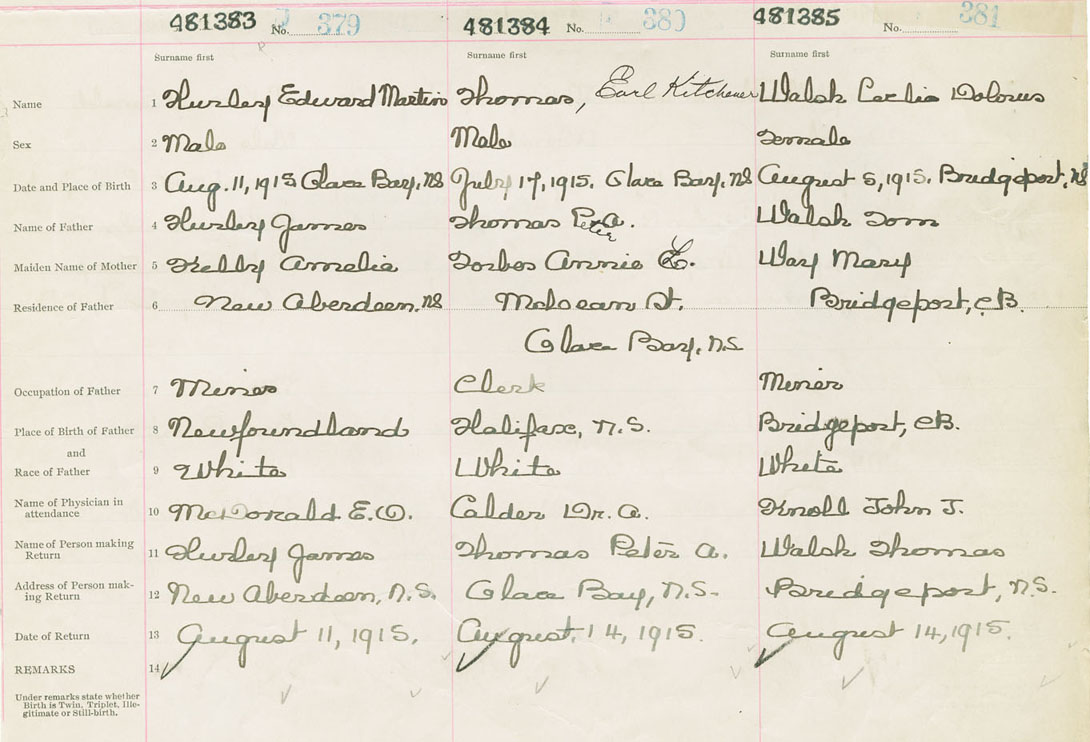 481383 No. 379 481384 No. 380 481385 No. 381
Surname first Surname first Surname first
Name 1 Hurley Edward Martin Thomas, Earl Kitchener Walsh Ceclia Dolorus
Sex 2 Male Male Female
Date and Place of Birth 3 Aug. 11, 1915 Glace Bay, NS July 17, 1915. Glace Bay, NS August 5, 1915. Bridgeport, NS
Name of Father 4 Hurley James Thomas Peter A. Walsh Tom
Maiden Name of Mother 5 Kelly Amelia Forbes Annie E. Way Mary
Residence of Father 6 New Aberdeen, NS McLean St. Bridgeport, CB.
Glace Bay, N.S
Occupation of Father 7 Miner Clerk Miner
Place of Birth of Father 8 Newfoundland Halifax, N.S. Bridgeport, CB.
and
Race of Father 9 White White White
Name of Physician in attendance 10 McDonald E.O. Calder Dr. A. Knoll John J.
Name of Person making Return 11 Hurley James Thomas Peter A. Walsh Thomas
Address of Person making Return 12 New Aberdeen, N.S. Glace Bay, N.S. Bridgeport, N.S.
Date of Return 13 August 11, 1915. August 14, 1915. August 14, 1915.
REMARKS 14
Under remarks state whether
Birth is Twin, Triplet, Ille-
gitimate or Still-birth.